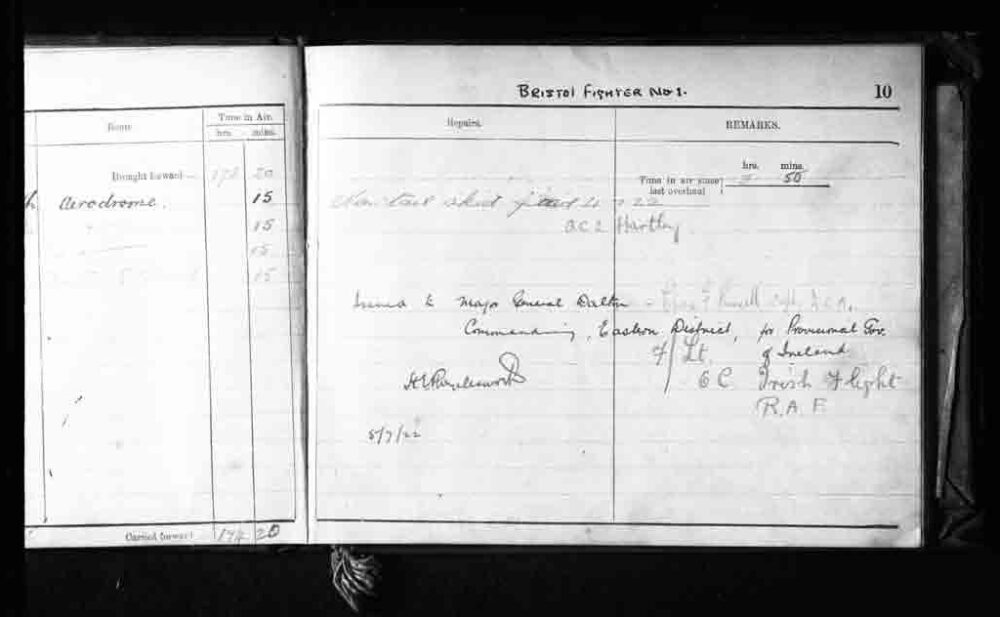 BRISTOL FIGHTER No 1.
10
Route
Time in Air.
hrs. mins.
Brought forward 173 20
h Aerodrome. 15
15
15
15
Carried forward 174 20
Repairs.
REMARKS.
hrs. mins.
Time in air since last overhaul 50
New tail skid fitted 4 7 22
AC2 Hartley
Major General Dalton
Commanding, Eastern District, for Provisional Gov.
of Ireland
F/Lt.
Irish Flight
R.A.F.
5/7/22